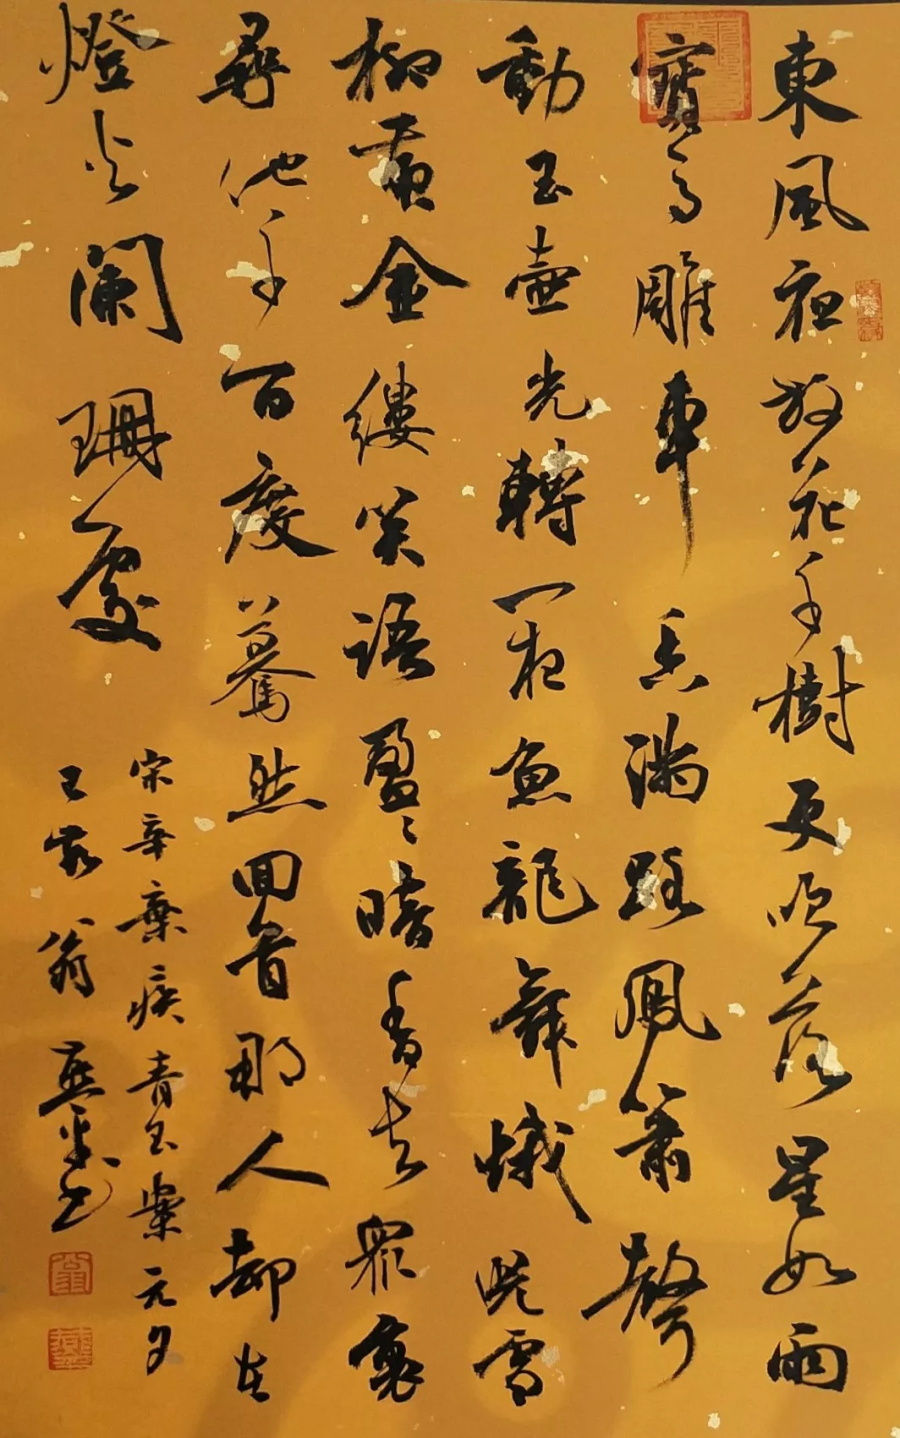 東風夜放花千樹更吹落星如雨
寶馬雕車香滿路鳳簫聲
動玉壺光轉一夜魚龍舞蛾兒雪
柳黃金縷笑語盈盈暗香去眾裏
尋他千百度驀然回首那人却在
燈火闌珊處
宋辛棄疾青玉案元夕
己亥翁燕書